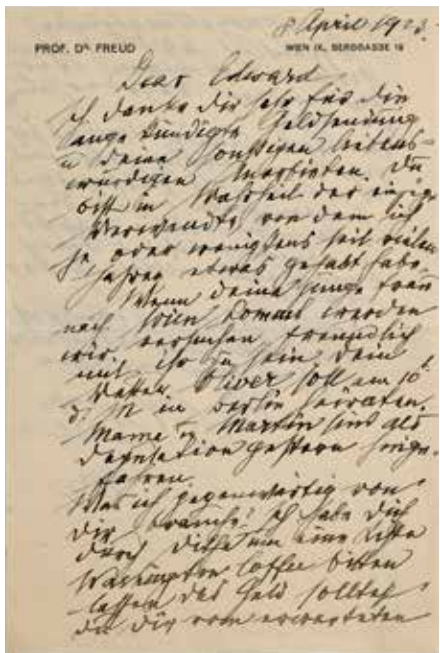 8 April 1923.
PROF. DR. FREUD
WIEN IX., BERGGASSE 19
Dear Edward
Ich danke dir sehr für die
angekündigte Geldsendung
u deine sonstigen liebens-
würdigen. Du
bist in Wahrheit der einzige
Verwandte von dem ich
je oder wenigstens seit vielen
Jahren etwas gehabt habe.
Wenn deine junge Frau
nach Wien kommt werden
wir versuchen freundlich
mit ihr zu sein. Dein
Vetter Oliver soll am 10t
d. M in Berlin heiraten.
Mama u Martin sind als
Deputation gestern hinge-
fahren.
Was ich gegenwärtig von
dir brauche? Ich habe dich
durch um eine Kiste
Washington Coffee bitten
lassen das Geld solltest
du dir vom erwarteten